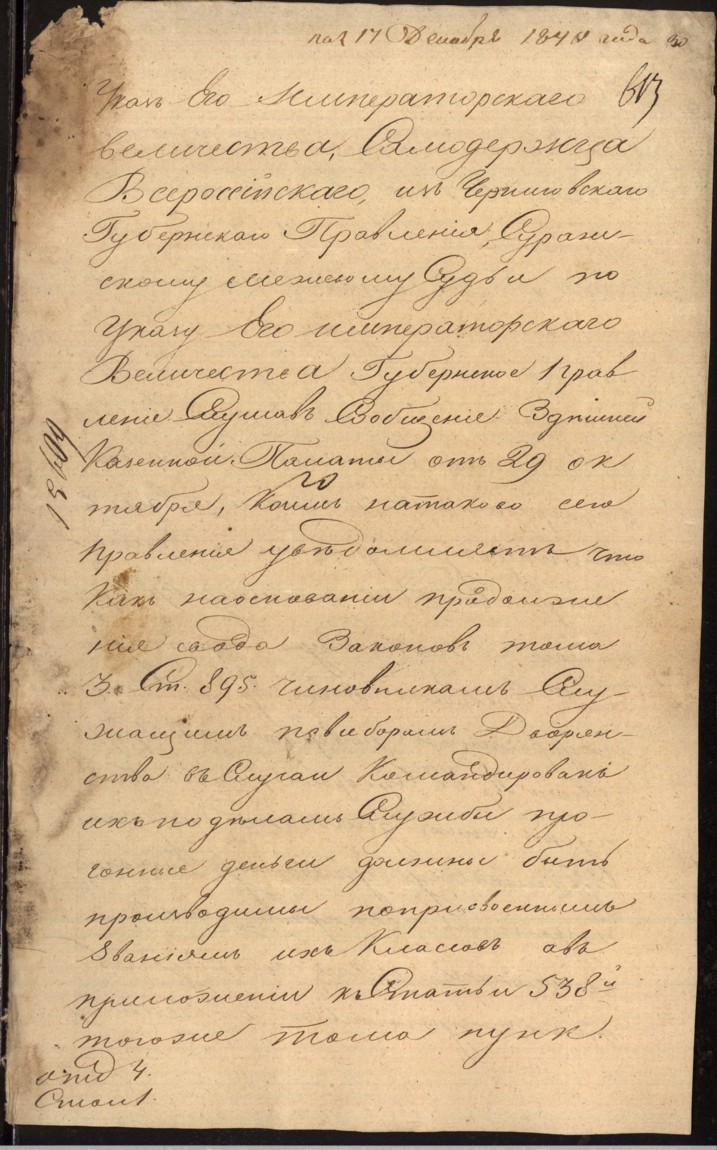 пол 17 Декабря 1841 года
613
Указъ Его Императорскаго
величества, Самодержца
Всероссійскаго, изъ Черниговскаго
Губернскаго Правленія, Суражи-
скому земскому Суду и по
Указу Его императорскаго
Величества Губернское Прав
леніе Слушавъ Сообщение Здѣшней
Казенной Палаты отъ 29 ок
тября, Коимъ натаково сего
Правленія увѣдомляетъ что
Какъ наоснованіи продолже
нія свода Законовъ тома
3. Ст. 895. чиновникамъ Слу-
жащимъ повыборамъ Дворян-
ства въ Случаи Командированія
ихъ по дѣламъ Службы про-
гонные деньги должны быть
производимы поприсвоеннымъ
Званіямъ ихъ Класовъ авъ
приложеніи къ Статьи 538й
тогоже тома пунк.
отд 4.
Столъ 1.
15609